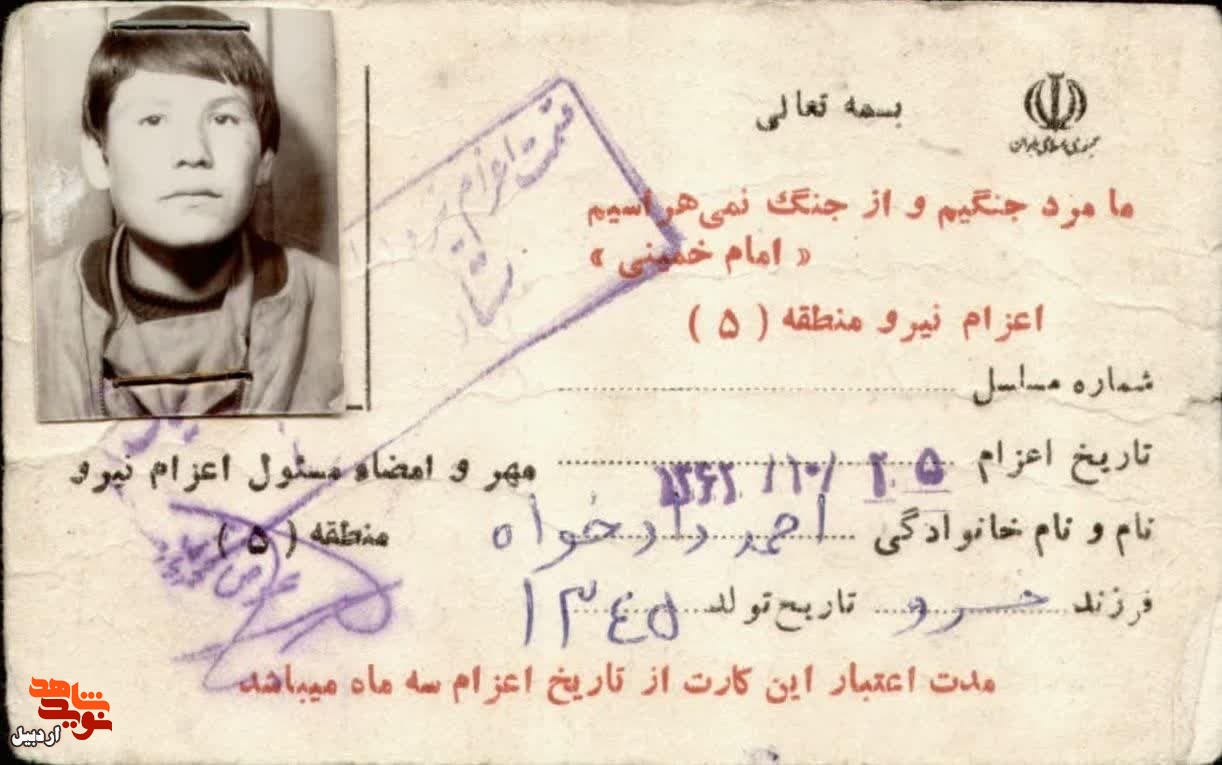 بسمه تعالی
جمهوری اسلامی ایران
ما مرد جنگیم و از جنگ نمی‌هراسیم
« امام خمینی »
اعزام نیرو منطقه ( ۵ )
شماره مسلسل
تاریخ اعزام ۲۵ /۱۰/ ۱۳۶۲
مهر و امضاء مسئول اعزام نیرو
منطقه ( ۵ )
نام و نام خانوادگی احمد دادخواه
فرزند خسرو تاریخ تولد ۱۳۴۵
مدت اعتبار این کارت از تاریخ اعزام سه ماه میباشد
قسمت اعزام نیرو
نوید شاهد
اردبیل